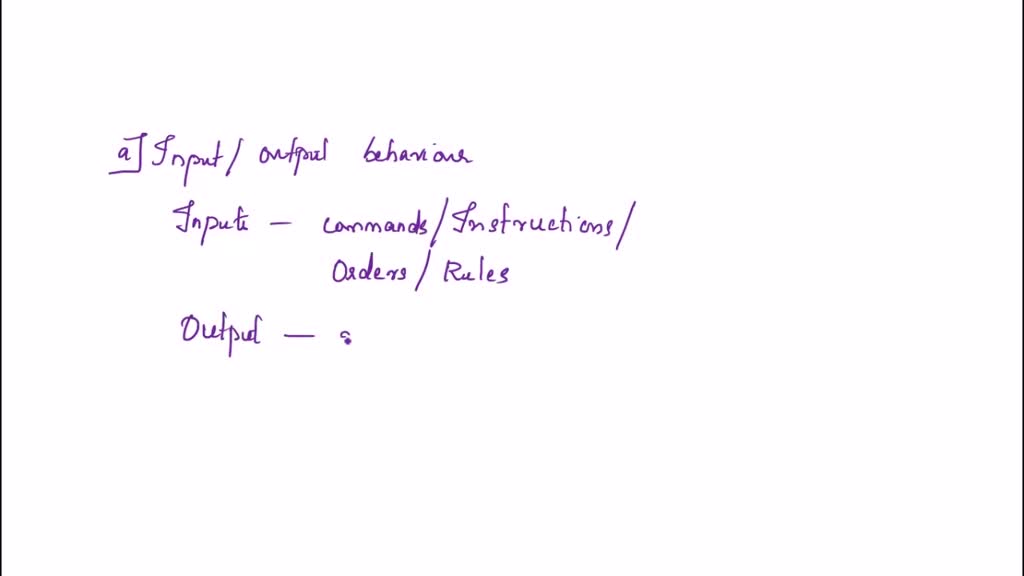 a] Input/ output behaviour
Inputs — commands/Instructions/
Orders/ Rules
Output —